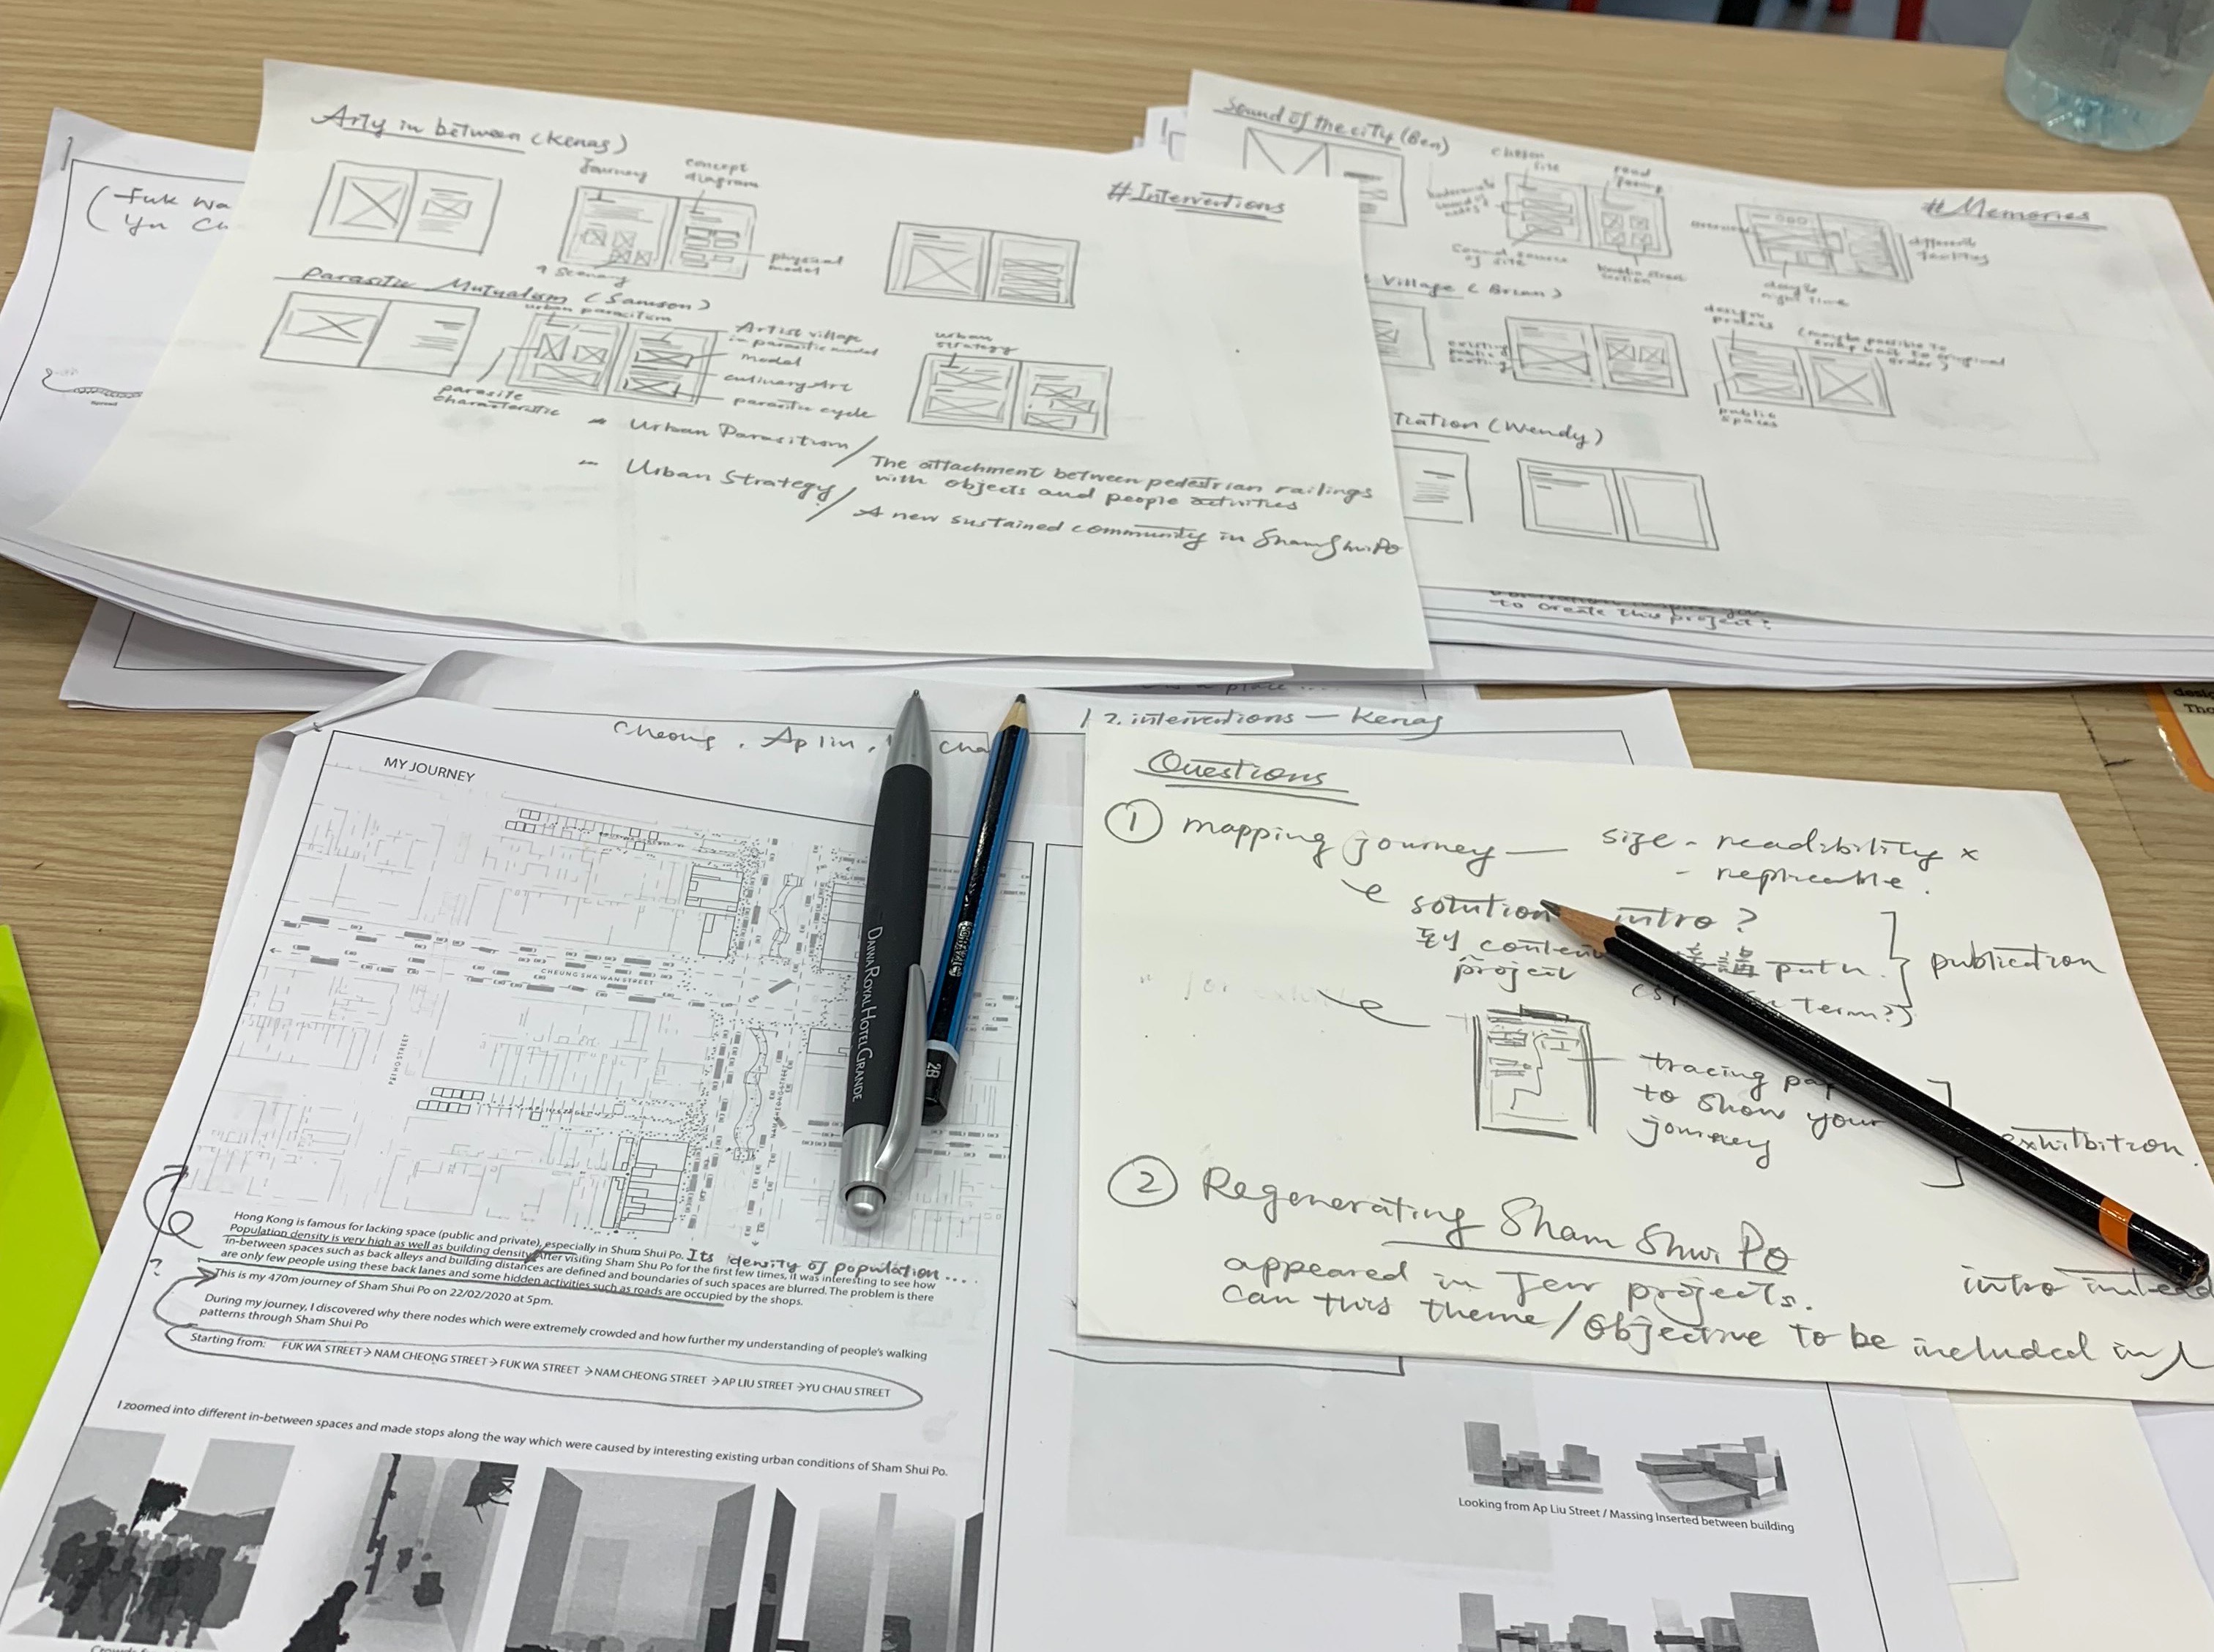 Arty in between (Kenas)
#Interventions
Journey
concept
diagram
physical
model
Scenery
Parasitic Mutualism (Samson)
urban parasitism
Artist village
in parasitic model
model
culinary Art
parasitic cycle
parasite
characteristic
urban
strategy
- Urban Parasitism / The attachment between pedestrian railings
with objects and people activities
- Urban Strategy / A new sustained community in Sham Shui Po
(Fuk Wa
Yu Ch
Sound of the city (Ben)
#Memories
chosen
site
road
Sound source
of site
section
day &
night time
different
facilities
Village (Brian)
existing
public
seating
design
process
(maybe possible to
swap back to original
order)
public
spaces
tration (Wendy)
to create this project?
is a place ...
Cheong, Ap liu, Cha
2. interventions — Kenas
MY JOURNEY
CHEUNG SHA WAN STREET
PEI HO STREET
NAM CHEONG STREET
DAIWA ROYAL HOTEL GRANDE
2B
Hong Kong is famous for lacking space (public and private), especially in Shum Shui Po. Its density of population ....
Population density is very high as well as building density. After visiting Sham Shu Po for the first few times, it was interesting to see how
in-between spaces such as back alleys and building distances are defined and boundaries of such spaces are blurred. The problem is there
are only few people using these back lanes and some hidden activities such as roads are occupied by the shops.
?
This is my 470m journey of Sham Shui Po on 22/02/2020 at 5pm.
During my journey, I discovered why there nodes which were extremely crowded and how further my understanding of people's walking
patterns through Sham Shui Po
Starting from: FUK WA STREET → NAM CHEONG STREET → FUK WA STREET → NAM CHEONG STREET → AP LIU STREET → YU CHAU STREET
I zoomed into different in-between spaces and made stops along the way which were caused by interesting existing urban conditions of Sham Shui Po.
Questions
① mapping journey — size - readibility ×
- replicable.
solution intro?
content 講 path.
project term?)
publication
tracing pap
to show your
journey
exhibition.
② Regenerating Sham Shui Po
appeared in few projects.
intro instead
Can this theme/objective to be included in
Looking from Ap Liu Street / Massing Inserted between building